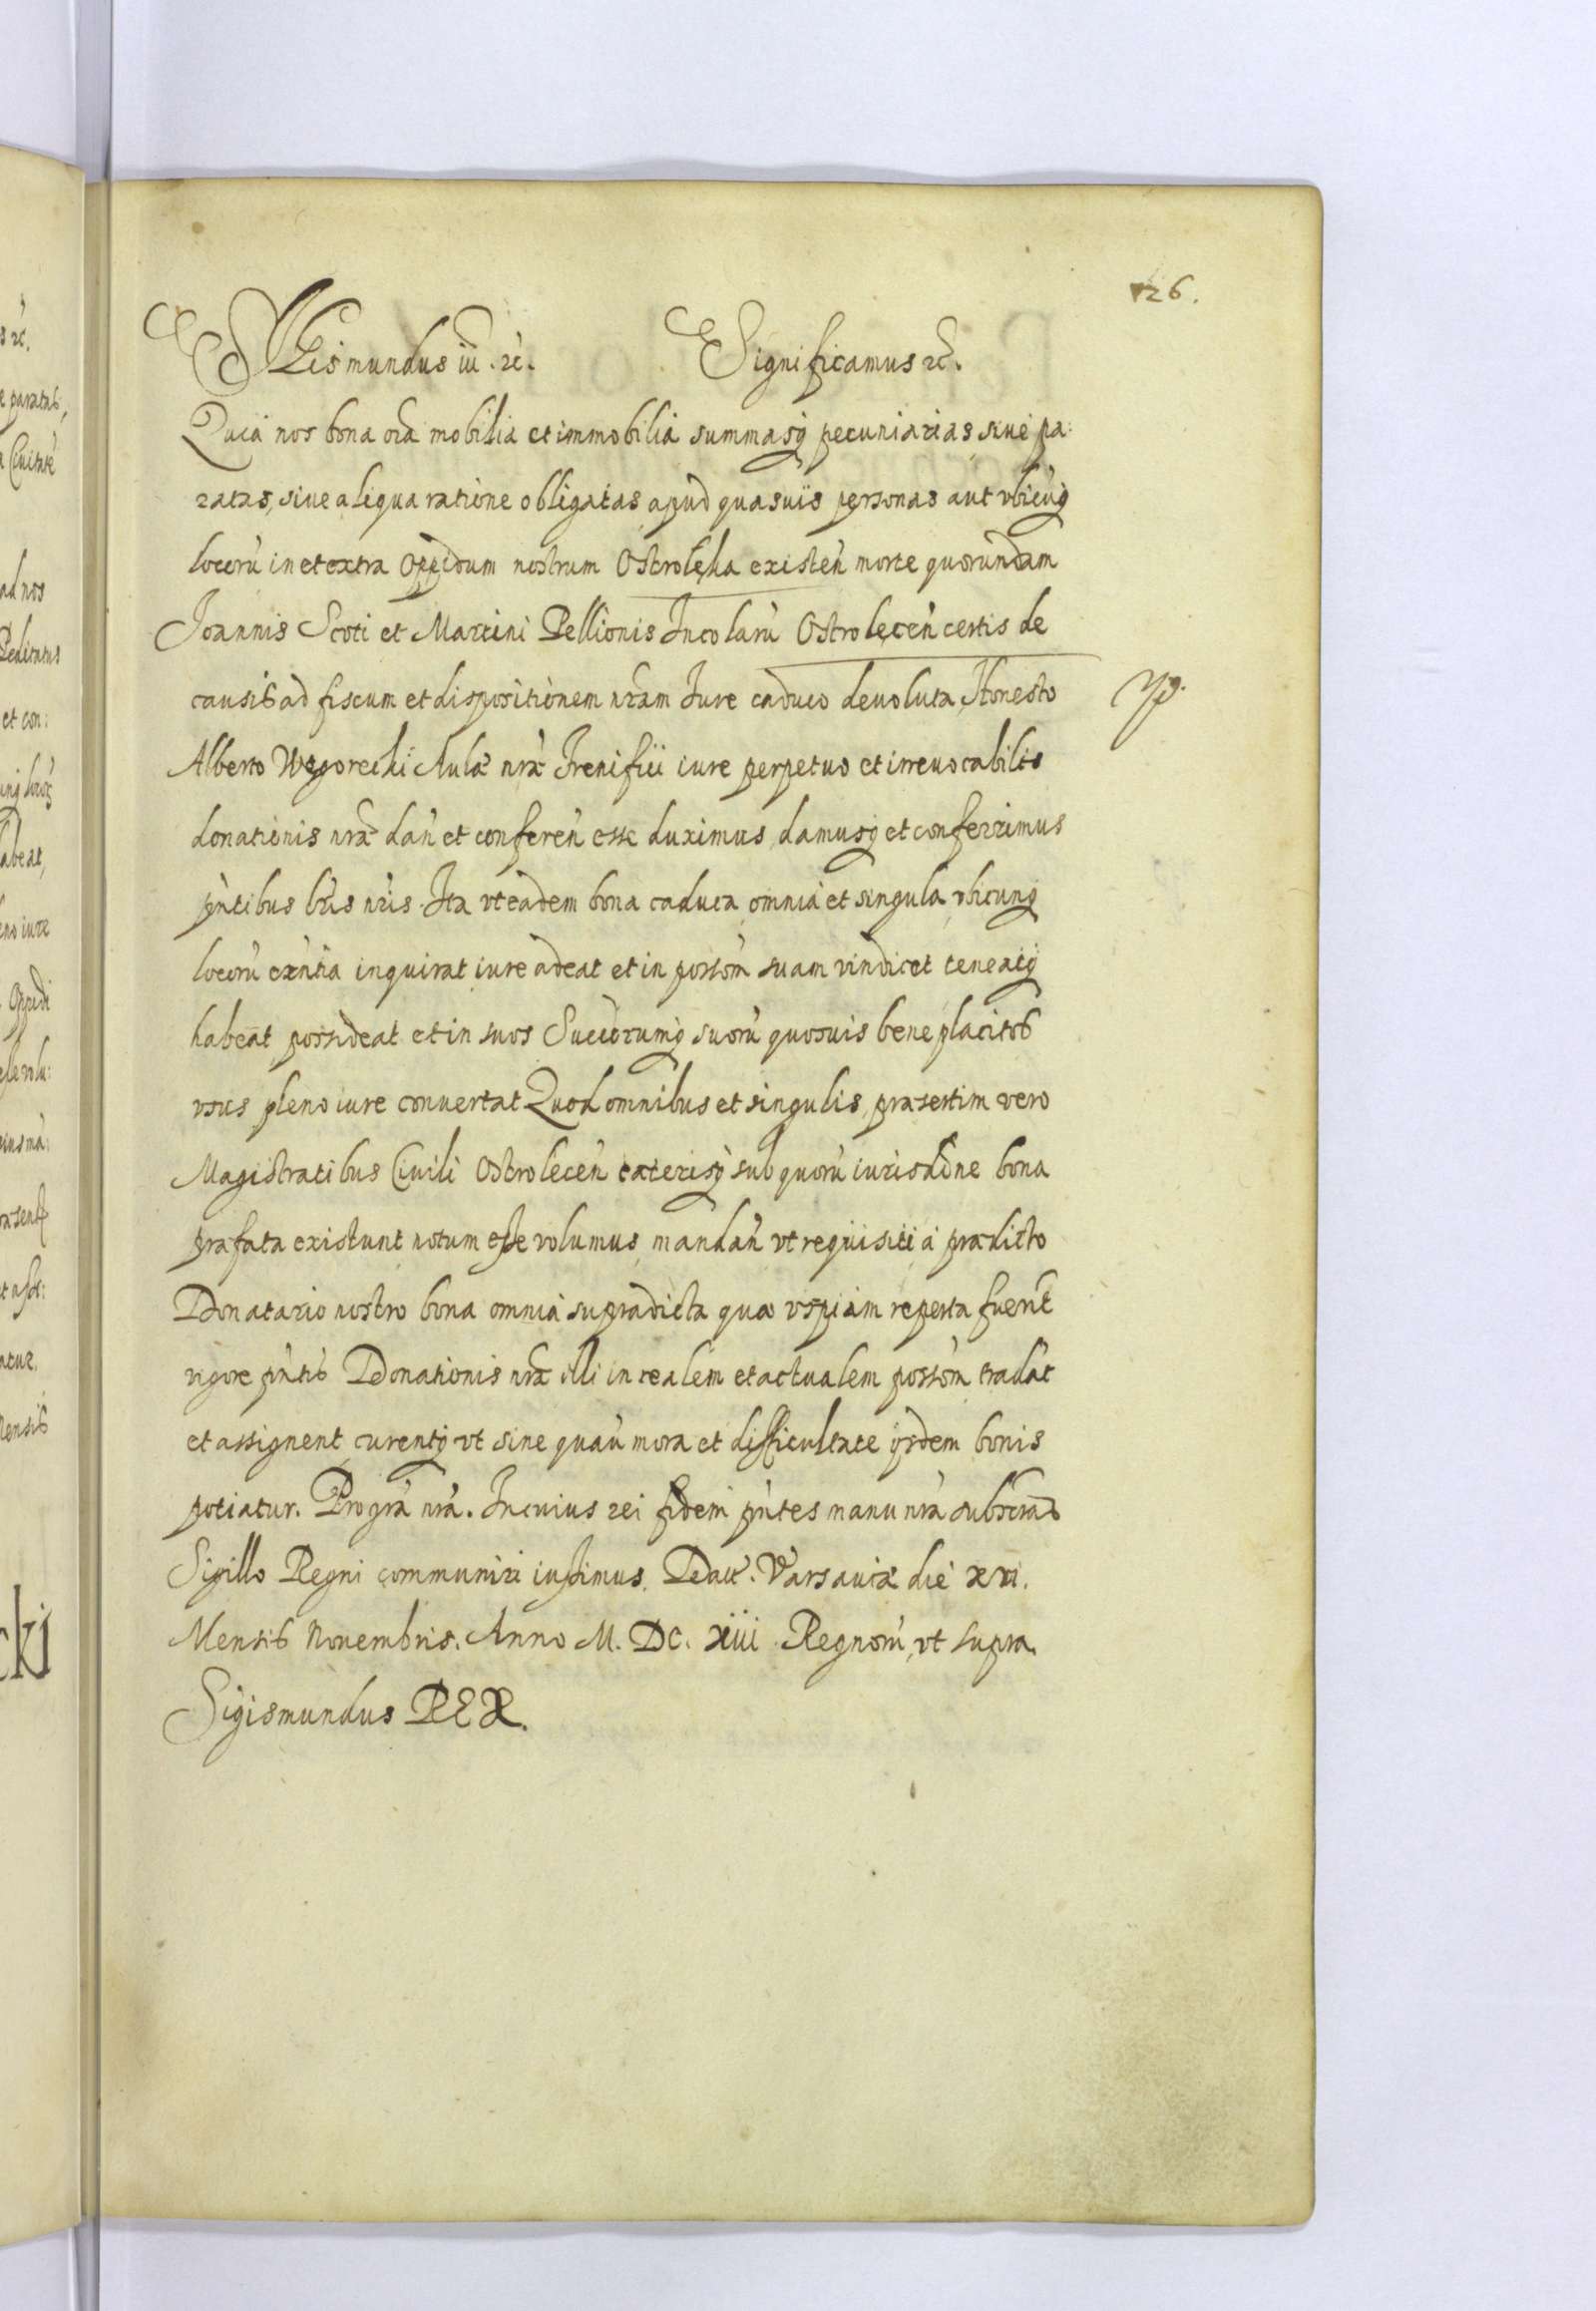 126.
Sigismundus iii. etc. Significamus etc.
Quia nos bona oĩa mobilia et immobilia summasq pecuniarias siue pa:
ratas, siue aliqua ratione obligatas apud quasuis personas aut vbicunq
locorũ in et extra Oppidum nostrum Ostrolęka existeñ morte quorundam
Joannis Scoti et Martini Pellionis Incolarũ Ostrolęceñ certis de
causis ad fiscum et dispositionem nrãm Jure caduco devoluta, Honesto
Alberto Węgorecki Aulæ nræ Frenifici iure perpetuo et irreuocabilis
donationis nræ dañ et confereñ esse duximus, damusq et conferrimus
pñtibus lris nris. Ita vt eadem bona caduca omnia et singula vbicunq
locorũ exñtia inquirat iure adeat et in possõm suam vindicet teneatq
habeat possideat et in suos Succorumq suorũ quosuis beneplacitos
vsus pleno iure conuertat Quod omnibus et singulis, præsertim vero
Magistratibus Ciuili Ostroleceñ cæterisq sub quorũ iurisdõne bona
præfata existunt notum esse volumus, mandañ vt requisiti a prædicto
Donatario nostro bona omnia supradicta quæ vspiam reperta fuerñt
vigore pñtis Donationis nræ illi in realem et actualem possõm tradãt
et assignent curentq vt sine quauĩ mora et difficultate ijsdem bonis
potiatur. Pro grã nrã. In cuius rei fidem pñtes manu nrã subscras
Sigillo Regni communiri iussimus. Datt. Varsaviæ die xvi.
Mensis Nouembris. Anno M. DC. xiii Regnorũ vt supra.
Sigismundus REX.